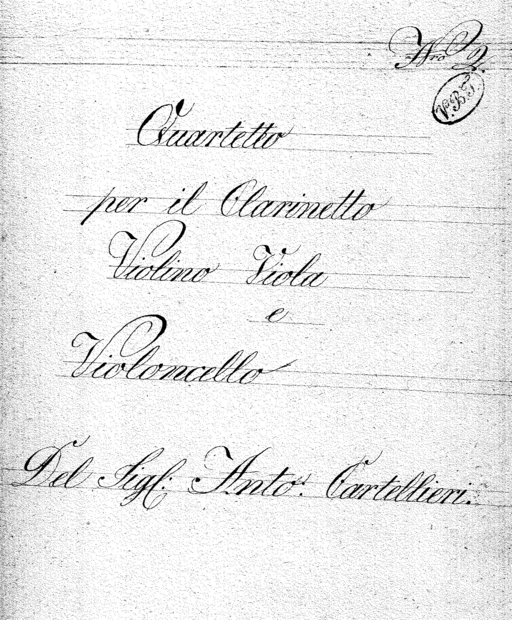 Nro 2.
V.B.F.
Quartetto
per il Clarinetto
Violino Viola
e
Violoncello
Del Sigl: Anto: Cartellieri.